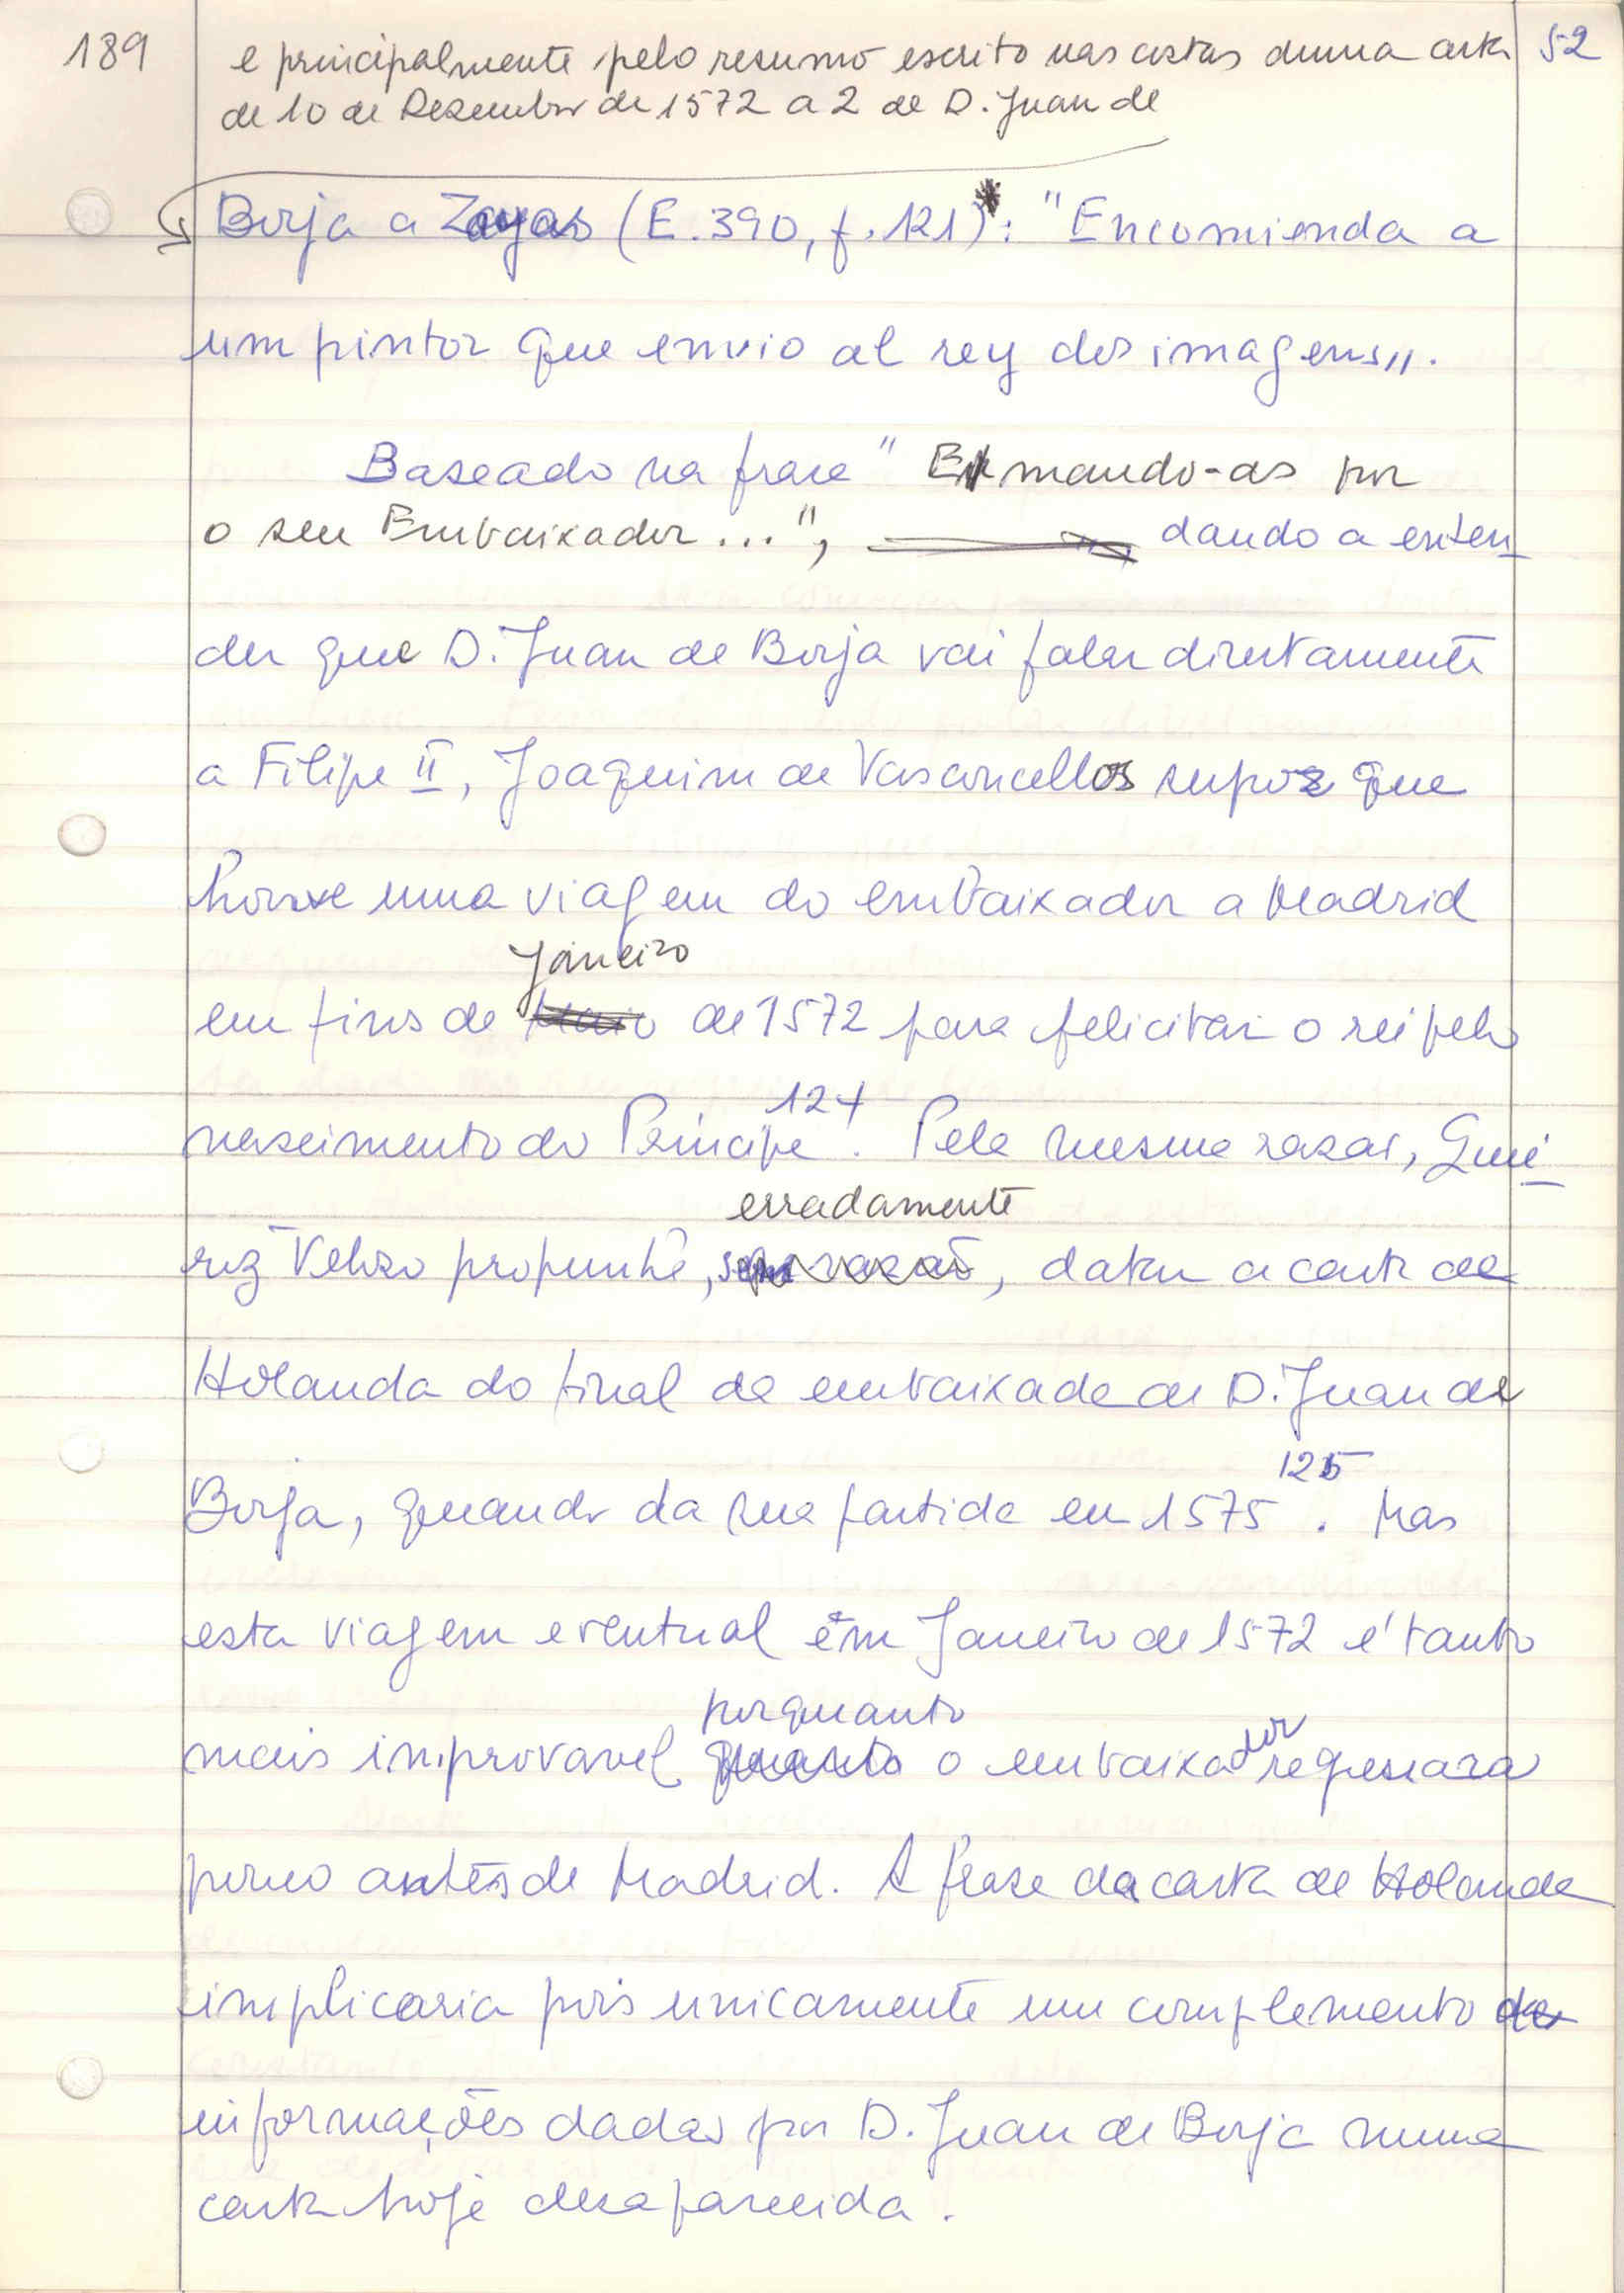 189
52
e principalmente pelo resumo escrito nas costas duma carta
de 10 de Dezembro de 1572 a 2 de D. Juan de
Borja a Zayas (E. 390, f. 121): "Encomienda a
um pintor que envio al rey dos imagens".
Baseado na frase "E mando-as por
o seu Embaixador...", dando a enten
der que D. Juan de Borja vai falar directamente
a Filipe II, Joaquim de Vasconcellos supoz que
houve uma viagem do embaixador a Madrid
Janeiro
em fins de Maio de 1572 para felicitar o rei pelo
124
nascimento do Principe. Pela mesma razão, Quei
erradamente
roz Velozo propunha, sem razão, datar a carta de
Holanda do final da embaixada de D. Juan de
125
Borja, quando da sua partida em 1575. Mas
esta viagem eventual em Janeiro de 1572 é tanto
porquanto
mais improvavel quanto o embaixador regressara
pouco antes de Madrid. A frase da carta de Holanda
implicaria pois unicamente um complemento de
informações dadas por D. Juan de Borja numa
carta hoje desaparecida.